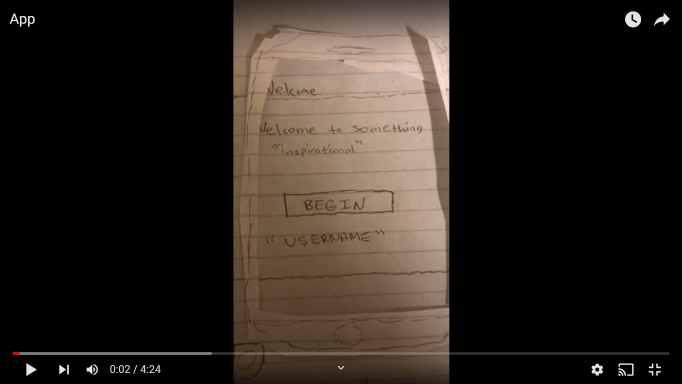 App
Welcome
Welcome to something
"inspirational"
BEGIN
"USERNAME"
0:02 / 4:24